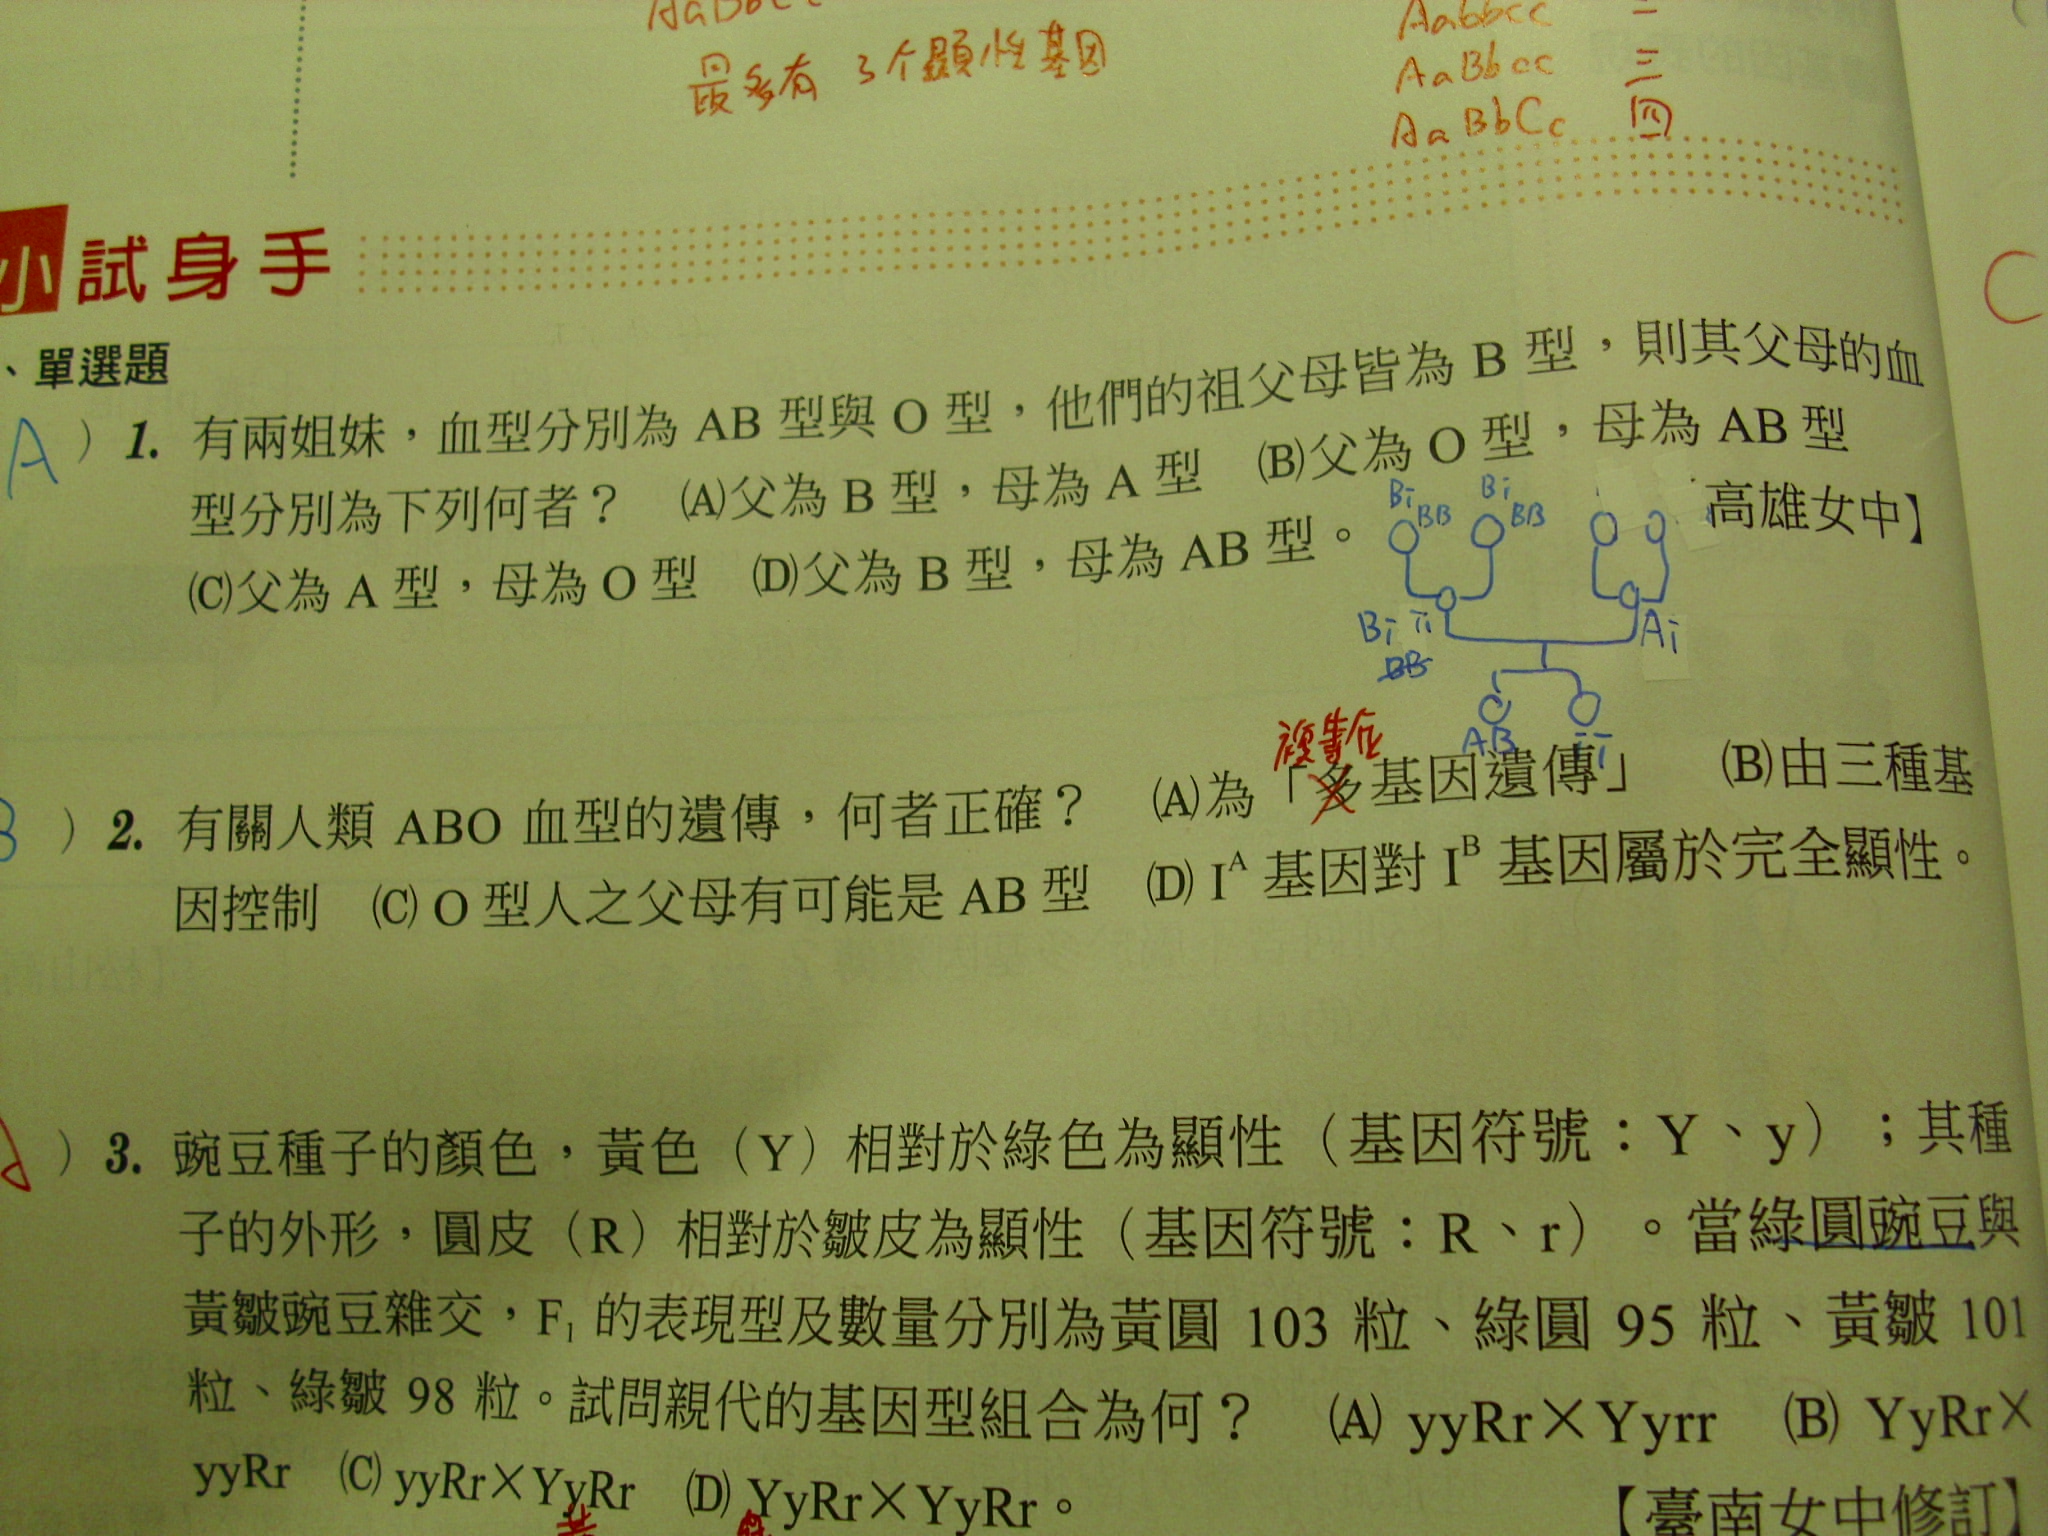 AaBbcc
最多有 3个顯性基因
Aabbcc 二
AaBbcc 三
AaBbCc 四
小試身手
、單選題
C
A ) 1. 有兩姐妹，血型分別為 AB 型與 O 型，他們的祖父母皆為 B 型，則其父母的血
型分別為下列何者？ (A)父為 B 型，母為 A 型 (B)父為 O 型，母為 AB 型
(C)父為 A 型，母為 O 型 (D)父為 B 型，母為 AB 型。
高雄女中】
Bi Bi
BB BB
Bi ii Ai
BB
AB ii
B ) 2. 有關人類 ABO 血型的遺傳，何者正確？ (A)為「多基因遺傳」 (B)由三種基
因控制 (C) O 型人之父母有可能是 AB 型 (D) Iᴬ 基因對 Iᴮ 基因屬於完全顯性。
) 3. 豌豆種子的顏色，黃色（Y）相對於綠色為顯性（基因符號：Y、y）；其種
子的外形，圓皮（R）相對於皺皮為顯性（基因符號：R、r）。當綠圓豌豆與
黃皺豌豆雜交，F₁ 的表現型及數量分別為黃圓 103 粒、綠圓 95 粒、黃皺 101
粒、綠皺 98 粒。試問親代的基因型組合為何？ (A) yyRr×Yyrr (B) YyRr×
yyRr (C) yyRr×YyRr (D) YyRr×YyRr。
【臺南女中修訂】